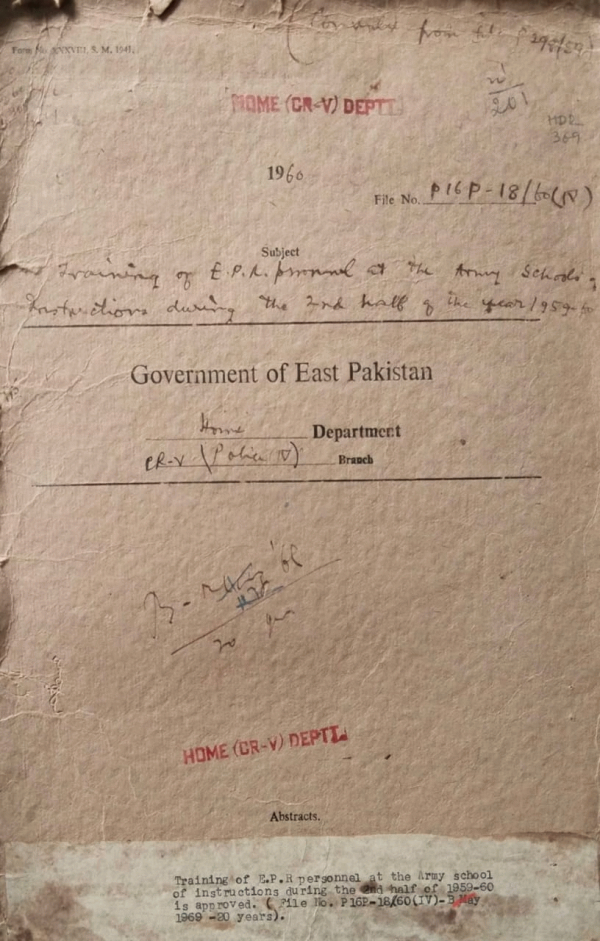 from
Form No. XXXVIII, S. M. 1941.
HOME (CR-V) DEPTT.
20
HDD
369
1960
File No. P16P-18/60(IV)
Subject
Training of E.P.R. personnel at the Army Schools of
Instructions during the 2nd half of the year 1959-60
Government of East Pakistan
Home Department
CR-V (Police IV) Branch
B -
20
HOME (CR-V) DEPTT.
Abstracts.
Training of E.P.R personnel at the Army school
of instructions during the 2nd half of 1959-60
is approved. ( File No. P16P-18/60(IV)-B May
1969 -20 years).